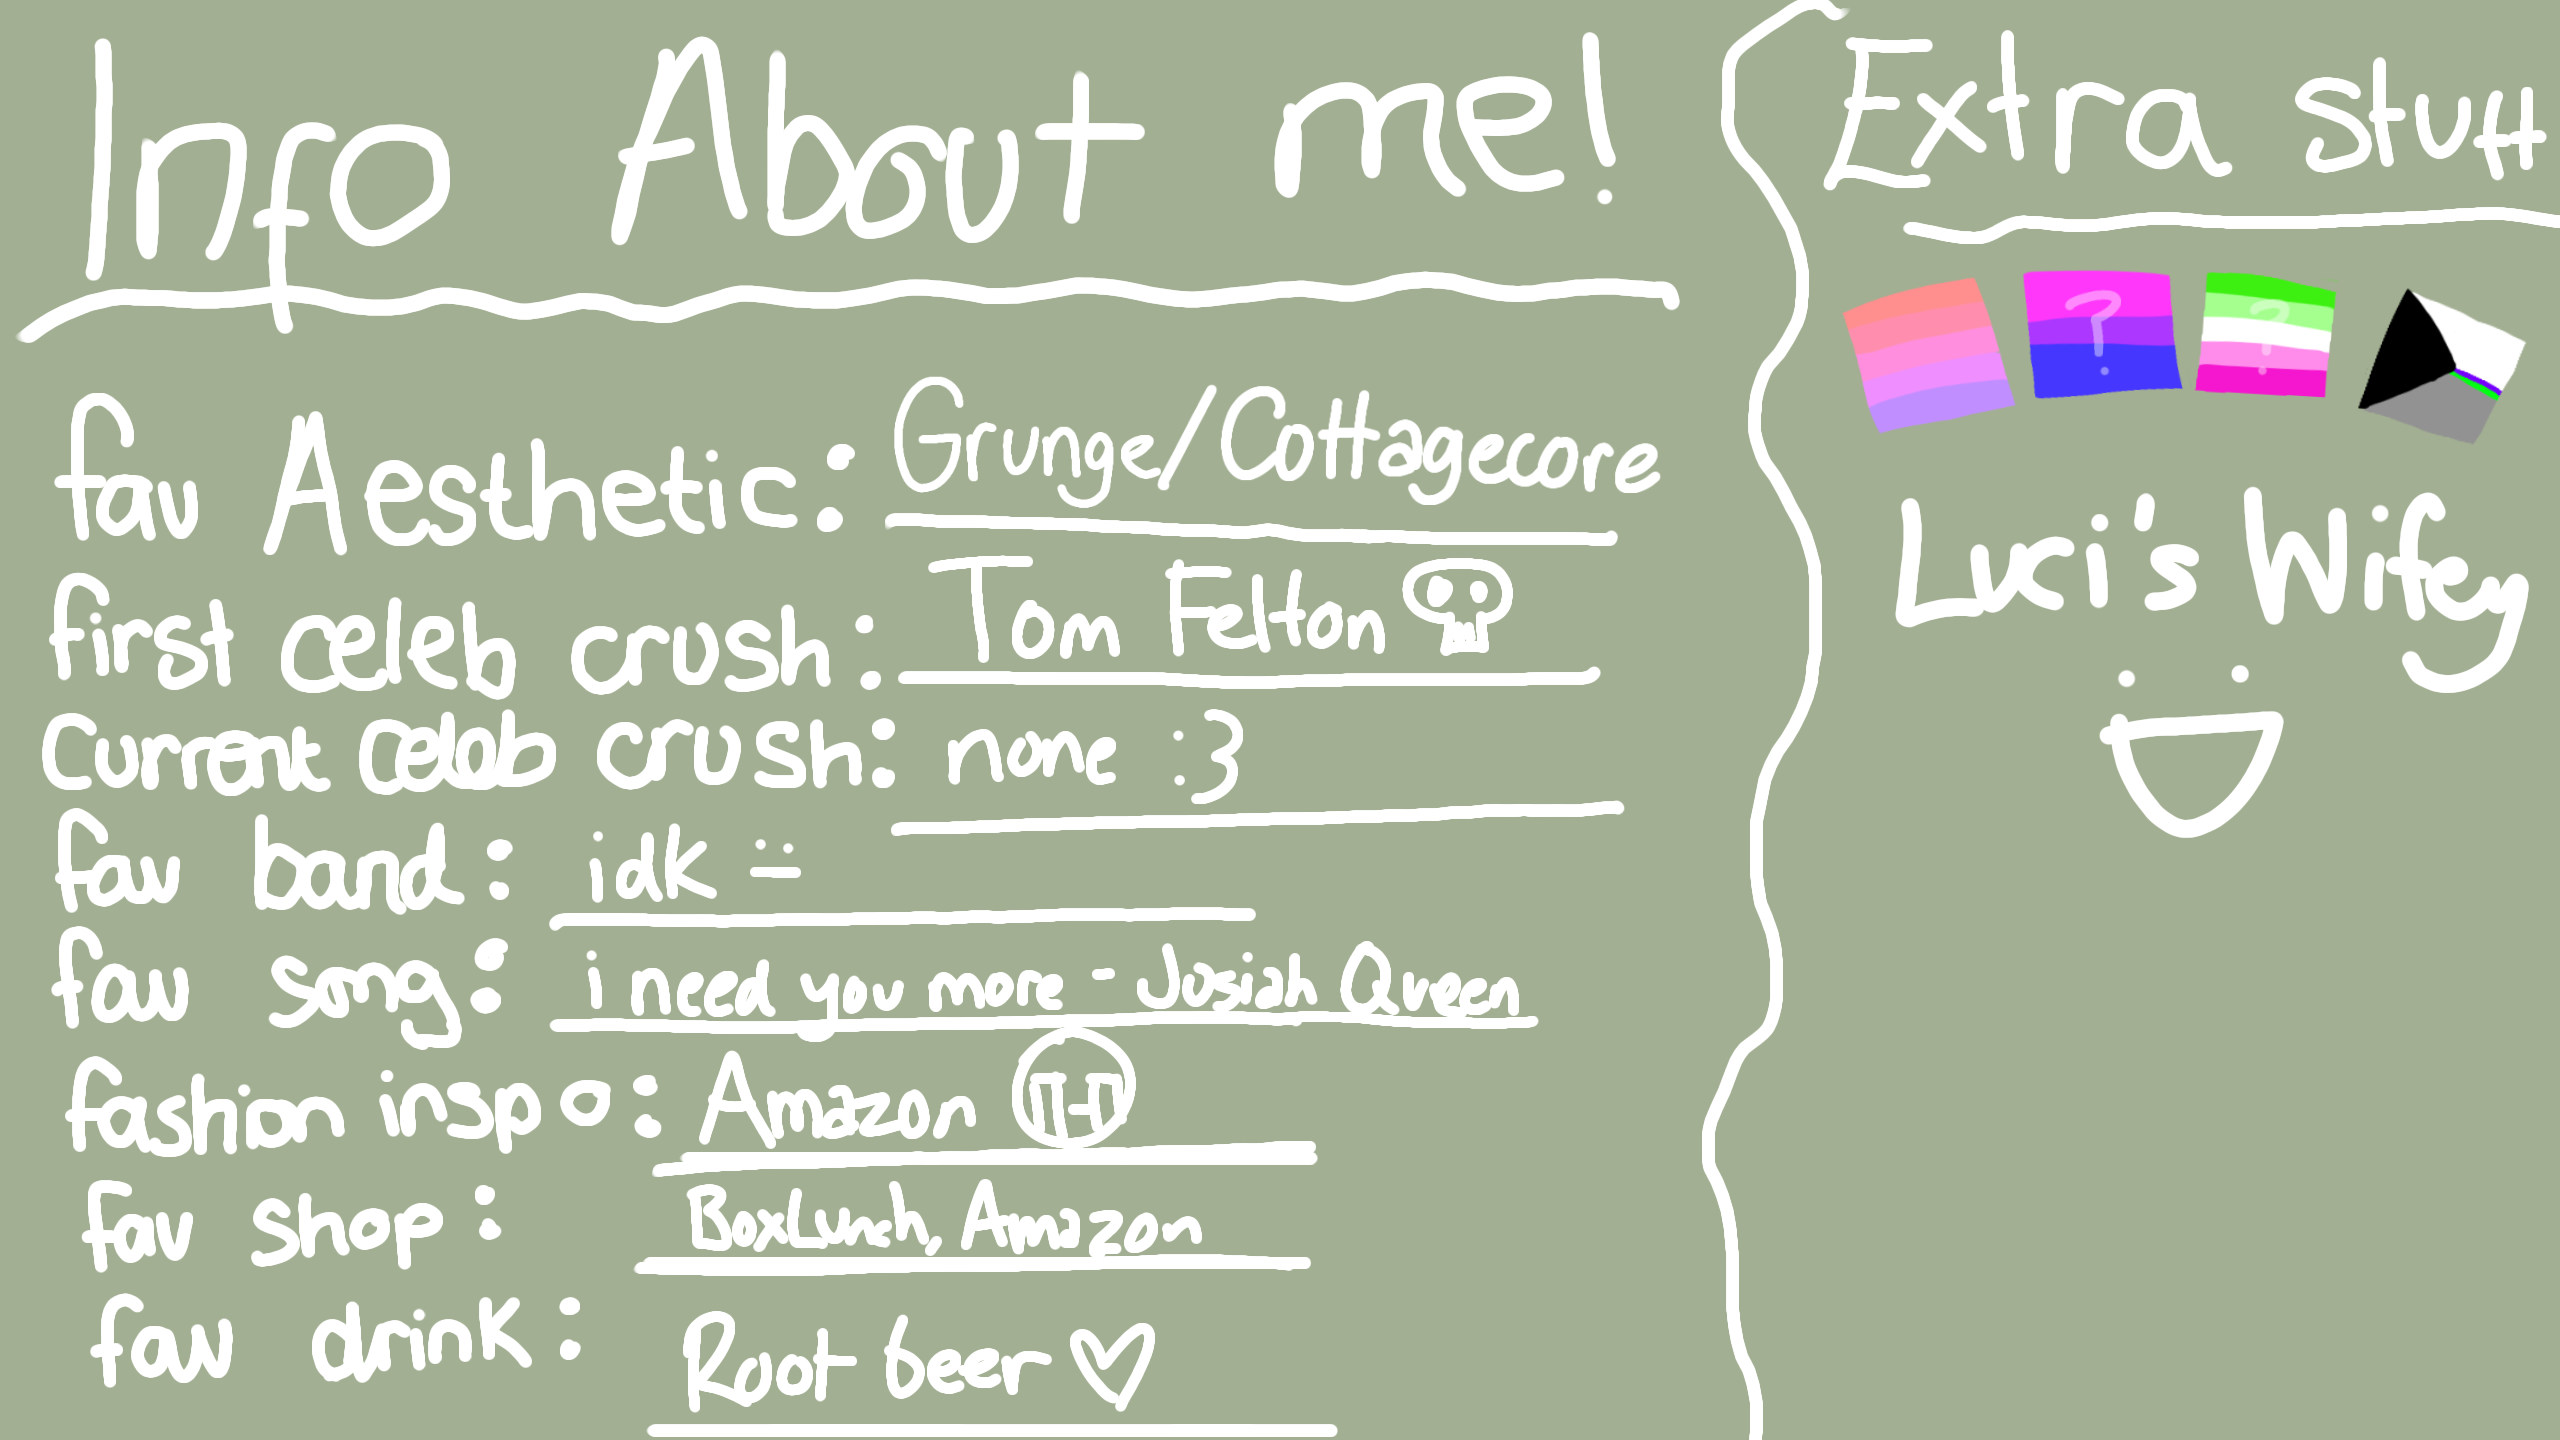 Info About me!
fav Aesthetic: Grunge/Cottagecore
first celeb crush: Tom Felton
Current celeb crush: none :3
fav band: idk
fav song: i need you more - Josiah Queen
fashion inspo: Amazon
fav shop: BoxLunch, Amazon
fav drink: Root beer
Extra stuff
? ?
Luci's Wifey